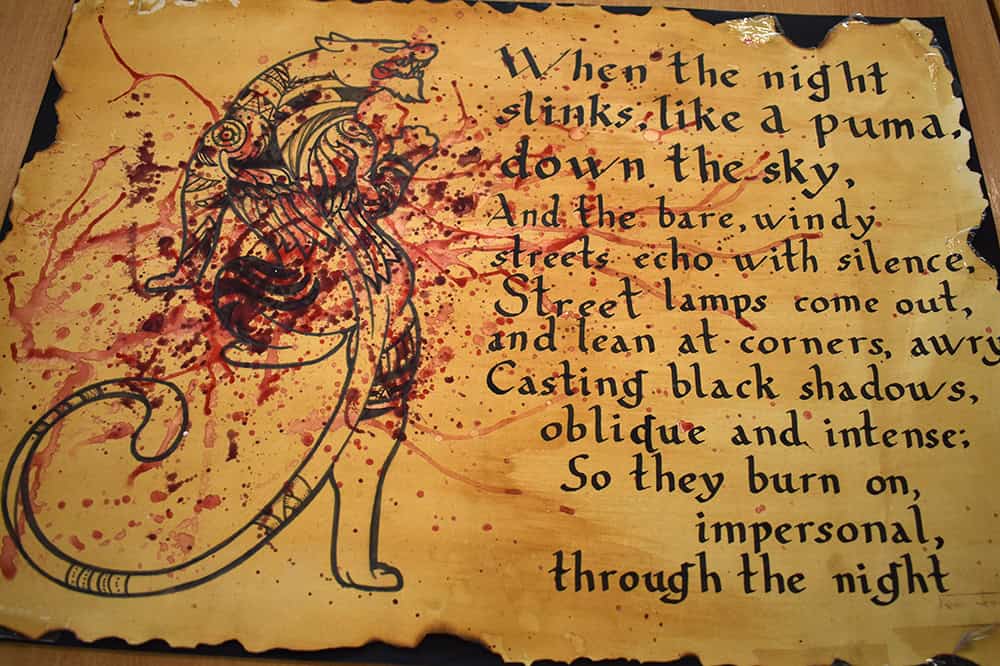 When the night
slinks, like a puma,
down the sky,
And the bare, windy
streets echo with silence,
Street lamps come out,
and lean at corners, awry
Casting black shadows,
oblique and intense;
So they burn on,
impersonal,
through the night